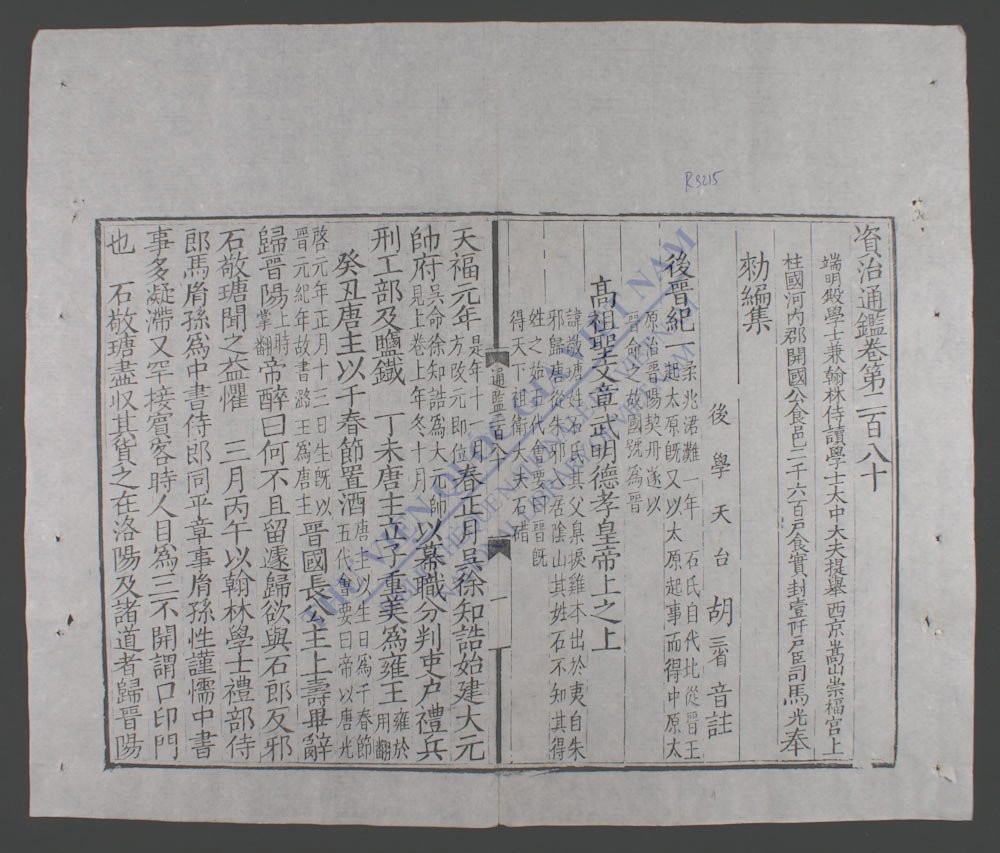 R.3215
資治通鑑卷第二百八十
端明殿學士兼翰林侍讀學士太中大夫提舉西京嵩山崇福宮上
柱國河內郡開國公食邑二千六百戶食實封壹阡戶臣司馬光奉
勑編集
後學天台胡三省音註
後晉紀一柔兆涒灘一年 石氏自代北從晉王
起太原既又以太原起事而得中原太
原治晉陽契丹遂以
晉命之故國號爲晉
高祖聖文章武明德孝皇帝上之上
諱敬瑭姓石氏其父臬捩雞本出於夷自朱
邪歸唐從朱邪入居陰山其姓石不知其得
姓之始五代會要曰晉既
得天下祖衛大夫石碏
通鑑二百八十
一
天福元年是年十一月
方改元即位春正月吳徐知誥始建大元
帥府吳命徐知誥爲大元帥
見上卷上年冬十月以幕職分判吏戶禮兵
刑工部及鹽鐵 丁未唐主立子重美爲雍王雍於
用翻
癸丑唐主以千春節置酒唐主以生日爲千春節
五代會要曰帝以唐光
啓元年正月十三日生既以
晉元紀年故書潞王爲唐主晉國長公主上壽畢辭
歸晉陽上時
掌翻帝醉曰何不且留遽歸欲與石郎反邪
石敬瑭聞之益懼 三月丙午以翰林學士禮部侍
郎馬胤孫爲中書侍郎同平章事胤孫性謹懦中書
事多凝滯又罕接賓客時人目爲三不開謂口印門
也 石敬瑭盡収其貨之在洛陽及諸道者歸晉陽
THƯ VIỆN QUỐC GIA VIỆT NAM